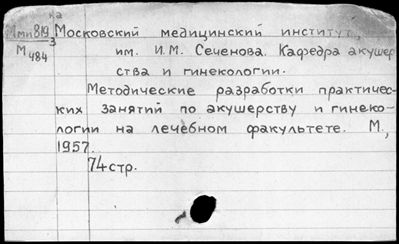 ка
Мми819 Московский медицинский институт,
3
М484 им. И.М. Сеченова. Кафедра акушер
ства и гинекологии.
Методические разработки практичес-
ких занятий по акушерству и гинеко-
логии на лечебном факультете. М.,
1957.
74стр.